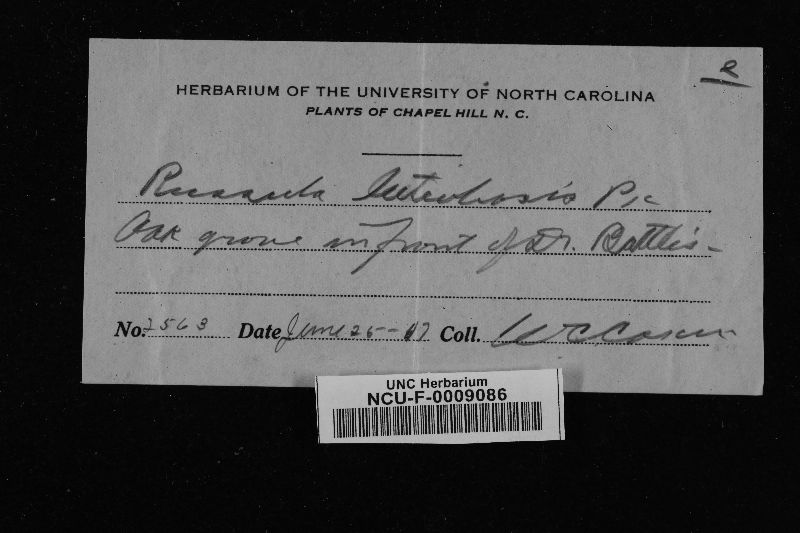 R
HERBARIUM OF THE UNIVERSITY OF NORTH CAROLINA
PLANTS OF CHAPEL HILL N. C.
Russula luteobasis Pk
Oak grove in front of Dr. Battle's
No. 2563 Date June 25-17 Coll. W C Coker
UNC Herbarium
NCU-F-0009086